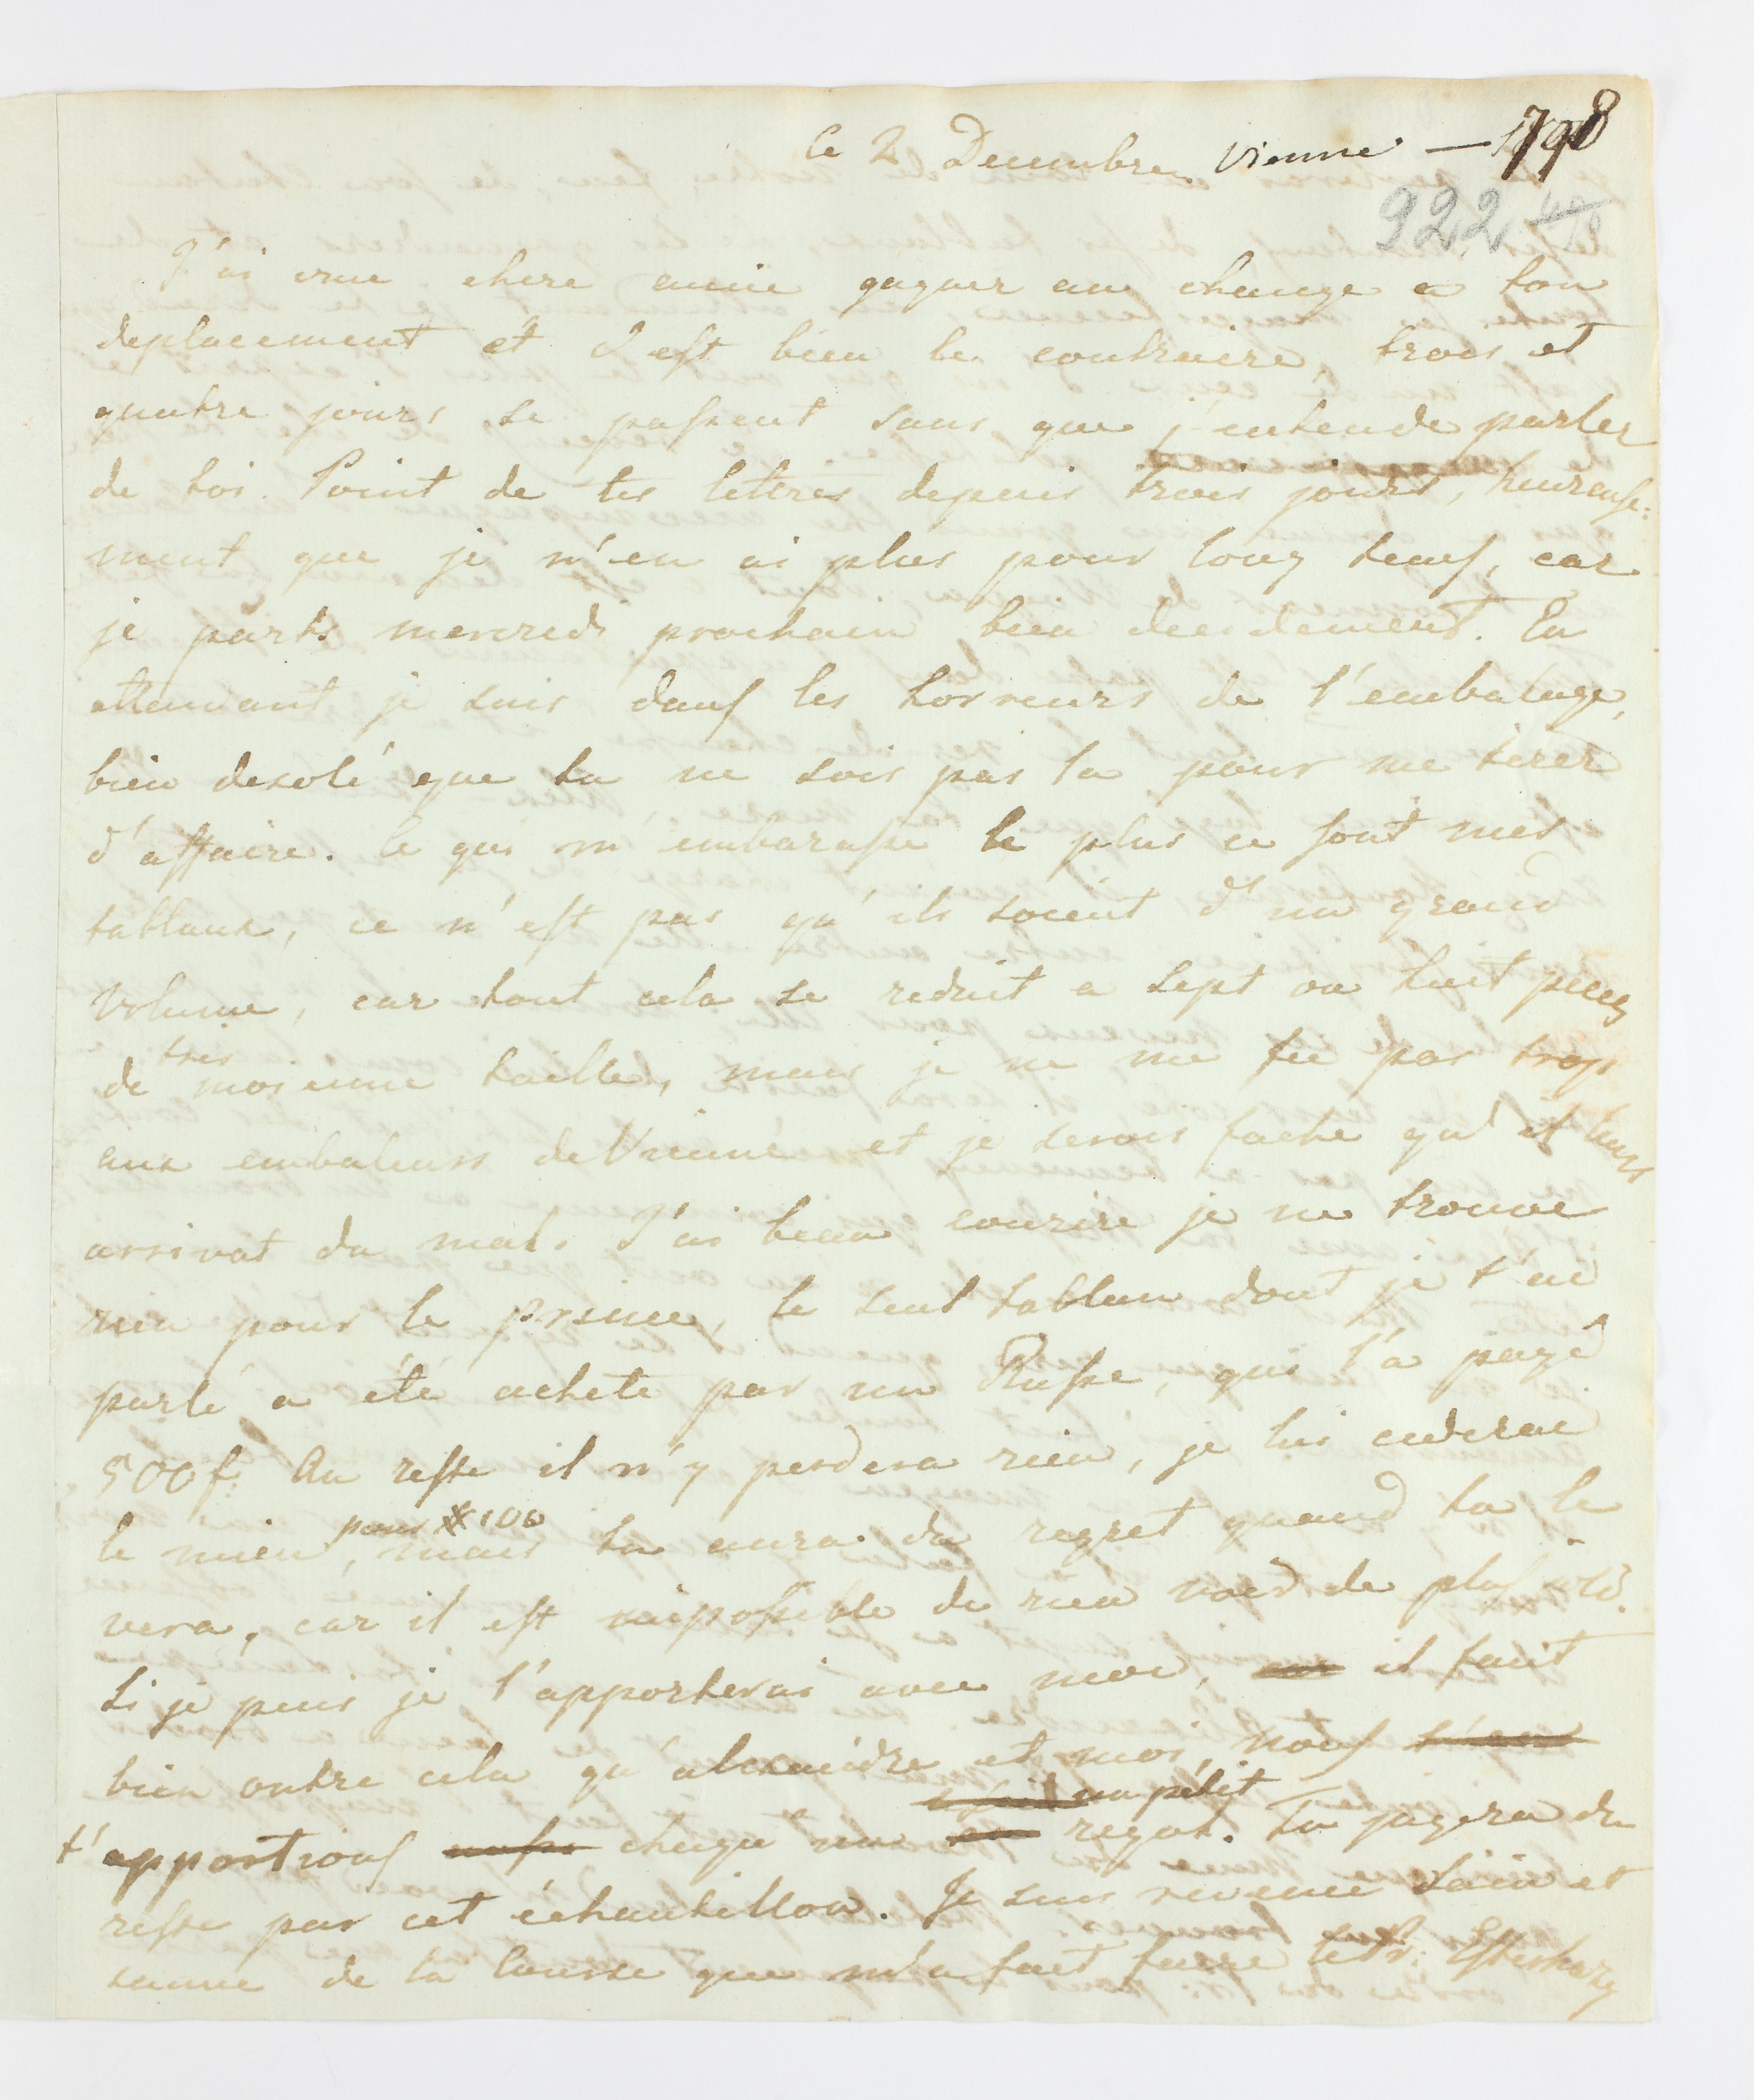 Ce 2 Decembre. Vienne — 1798
922
J'ai crue chere amie gagner au change a ton
deplacement et c'est bien le contraire, trois et
quatre jours se passent sans que j'entende parler
de toi. Point de tes lettres depuis trois jours, heureuse:
ment que je n'en ai plus pour long tems, car
je parts mercredi prochain bien decidement. En
attendant je suis dans les horreurs de l'embalage,
bien desolé que tu ne sois pas la pour me tirer
d'affaire. Ce qui m'embarasse le plus ce sont mes
tablaux, ce n'est pas qu'ils soient d'un grand
volume, car tout cela se reduit a sept ou huit pieces
de très moienne taille, mais je ne me fie pas trop
aux embaleurs de Vienne et je serois faché qu'il leurs
arrivat du mal. J'ai beau courire je ne trouve
rien pour le prince, le seul tablau dont je t'ai
parlé a été acheté par un Russe, qui l'a payé
500 f. Au reste il n'y perdera rien, je lui cederai
le mien pour # 100, mais tu aura du regret quand tu le
vera, car il est impossible de rien voir de plus joli.
Si je puis je l'apporterai avec moi, il faut
bien outre cela qu'alexandre et moi, nous
t'apportions chaqu'un un petit regal. Tu jugera du
reste par cet échantillon. Je suis revenue sain et
sauve de la course que m'a fait faire le Pr: Esterhazy